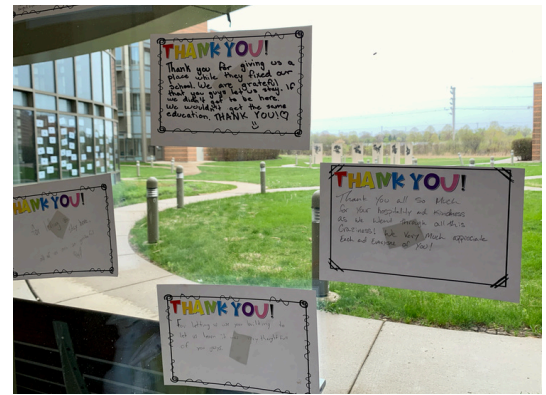 THANK YOU!
Thank you for giving us a
place while they fixed our
school. We are grateful
that you guys let us stay. If
we didn't get to be here,
we wouldn't get the same
education. THANK YOU!
THANK YOU!
Thank you all so much
for your hospitality and kindness
as we went through all this
craziness! We very much appreciate
each and everyone of you!
THANK YOU!
THANK YOU!
For letting us use your building to
let us learn
of you guys